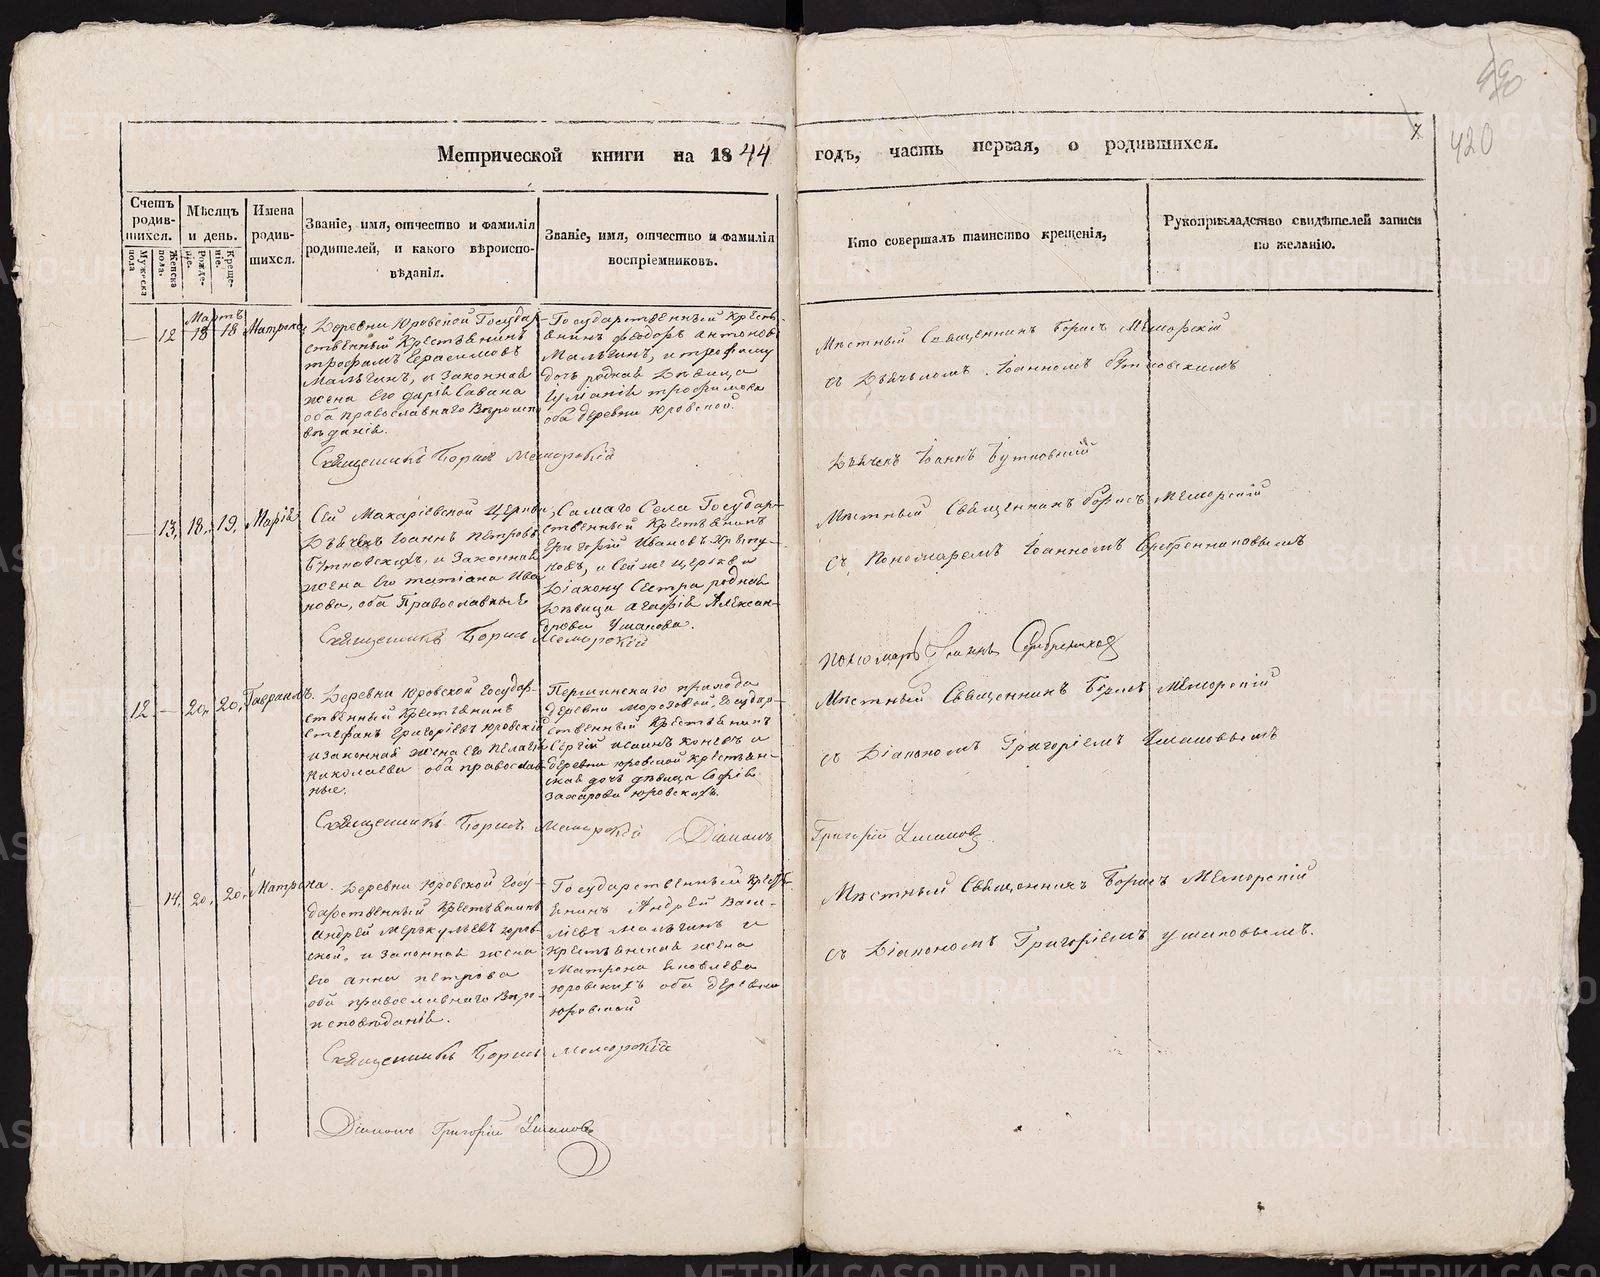 420
7
Метрической книги на 1844 годъ, часть первая, о родившихся.
Счетъ родив-шихся.
Мужеска пола
Женска пола.
Мѣсяцъ и день.
Рожде-
Креще-ніе.
Имена родив-шихся.
Званіе, имя, отчество и фамилія
родителей, и какого вѣроиспо-
вѣданія.
Званіе, имя, отчество и фамилія
воспріемниковъ.
Кто совершалъ таинство крещенія,
Рукоприкладство свидѣтелей записи
по желанію.
Мартъ
12 18 18 Матрона
Деревни Юровской Государ-
ственный Крестьянинъ
трофимъ Герасимовъ
Мальгинъ, и Законная
жена Его дарія Савина
оба православнаго Вѣроиспо
вѣданія.
Государственный Кресть-
янинъ феодоръ антоновъ
Мальгинъ, и трофиму
дочь родная Дѣвица
трофимова
оба деревни Юровской.
Священникъ Борисъ Меморскій
Мѣстный Священникъ Борисъ Меморскій
съ Дьячкомъ Іоанномъ Бутковскимъ
Дьячекъ Іоаннъ Бутковскій
13. 18. 19. Марія
Сей Макаріевской Церкви
Дьячекъ Іоаннъ Петровъ
Бутковскій, и Законная
жена Его татіана Ива
нова, оба Православные
Самаго Села Государ-
ственный Крестьянинъ
Григорій Ивановъ
и Сей же Церкви
Діакону Сестра родная
Дѣвица Агафія Алексан-
дрова Ушакова.
Священникъ Борисъ Меморскій
Мѣстный Священникъ Борисъ Меморскій
съ Пономаремъ Іоанномъ Серебренниковымъ
пономарь Іоаннъ Серебрениковъ
12. — 20. 20. Гавріилъ.
Деревни Юровской Государ-
ственный Крестьянинъ
Стефанъ Григоріевъ Юровскій
и законная жена его Пелагія
Николаева оба православ-
ные.
Першинскаго прихода
деревни Морозовой, Государ-
ственный Крестьянинъ
Сергій Исаинъ Коневъ и
деревни Юровской крестьян-
ская дочь дѣвица Софія
Захарова Юровскихъ.
Священникъ Борисъ Меморскій Діаконъ Григорій Ушаковъ
Мѣстный Священникъ Борисъ Меморскій
съ Діакономъ Григоріемъ Ушаковымъ
14. 20. 20. Матрона.
Деревни Юровской Госу-
дарственный Крестьянинъ
Андрей Меркульевъ Юров-
ской, и Законная жена
Его анна петрова
оба православнаго Вѣро-
исповѣданія.
Государственный Кресть-
янинъ Андрей Васи-
ліевъ Мальгинъ и
Крестьянская жена
Матрона Яковлева
Юровскихъ оба деревни
Юровской
Священникъ Борисъ Меморскій
Мѣстный Священникъ Борисъ Меморскій
съ Діакономъ Григоріемъ Ушаковымъ.
Діаконъ Григорій Ушаковъ
METRIKI.GASO-URAL.RU